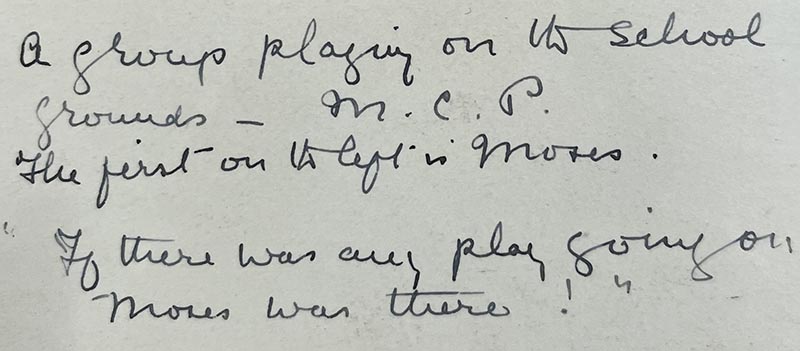 A group playing on the school
grounds – M. C. P.
The first on the left is Moses.
"If there was any play going on
Moses was there!"